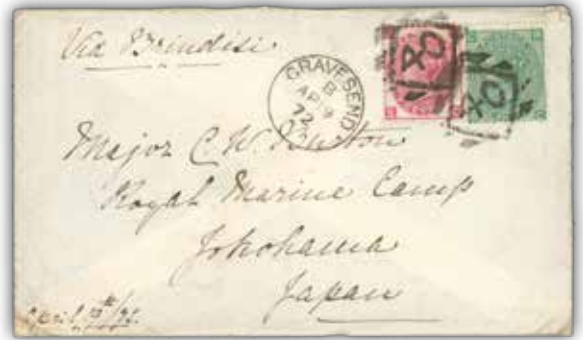 Via Brindisi
GRAVESEND
B
AP 9
72
40
40
Major C. W. Burton
Royal Marine Camp
Yokohama
Japan
April